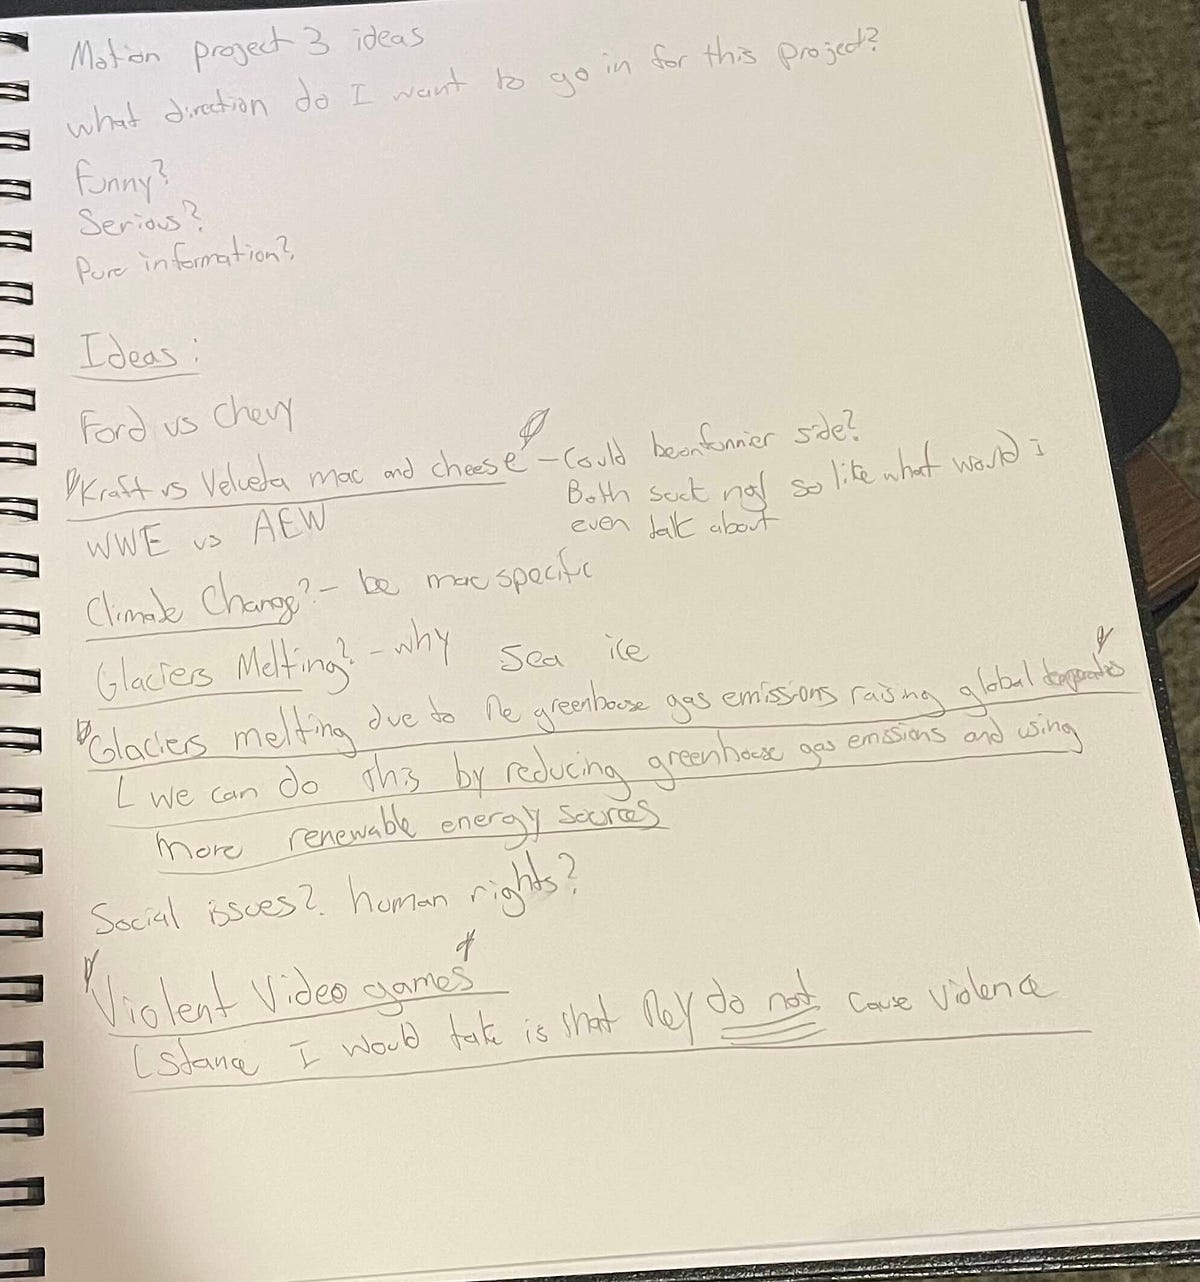 Motion project 3 ideas
what direction do I want to go in for this project?
Funny?
Serious?
Pure information?
Ideas:
Ford vs Chevy
Kraft vs Velveeta mac and cheese - Could be on funnier side?
Both suck so like what would i
even talk about
WWE vs AEW
Climate Change? - be mor specific
Glaciers Melting? - why sea ice
Glaciers melting due to the greenhouse gas emissions raising global
we can do this by reducing greenhouse gas emissions and using
more renewable energy sources
Social issues? human rights?
Violent Video games
Stance I would take is that they do not cause violence